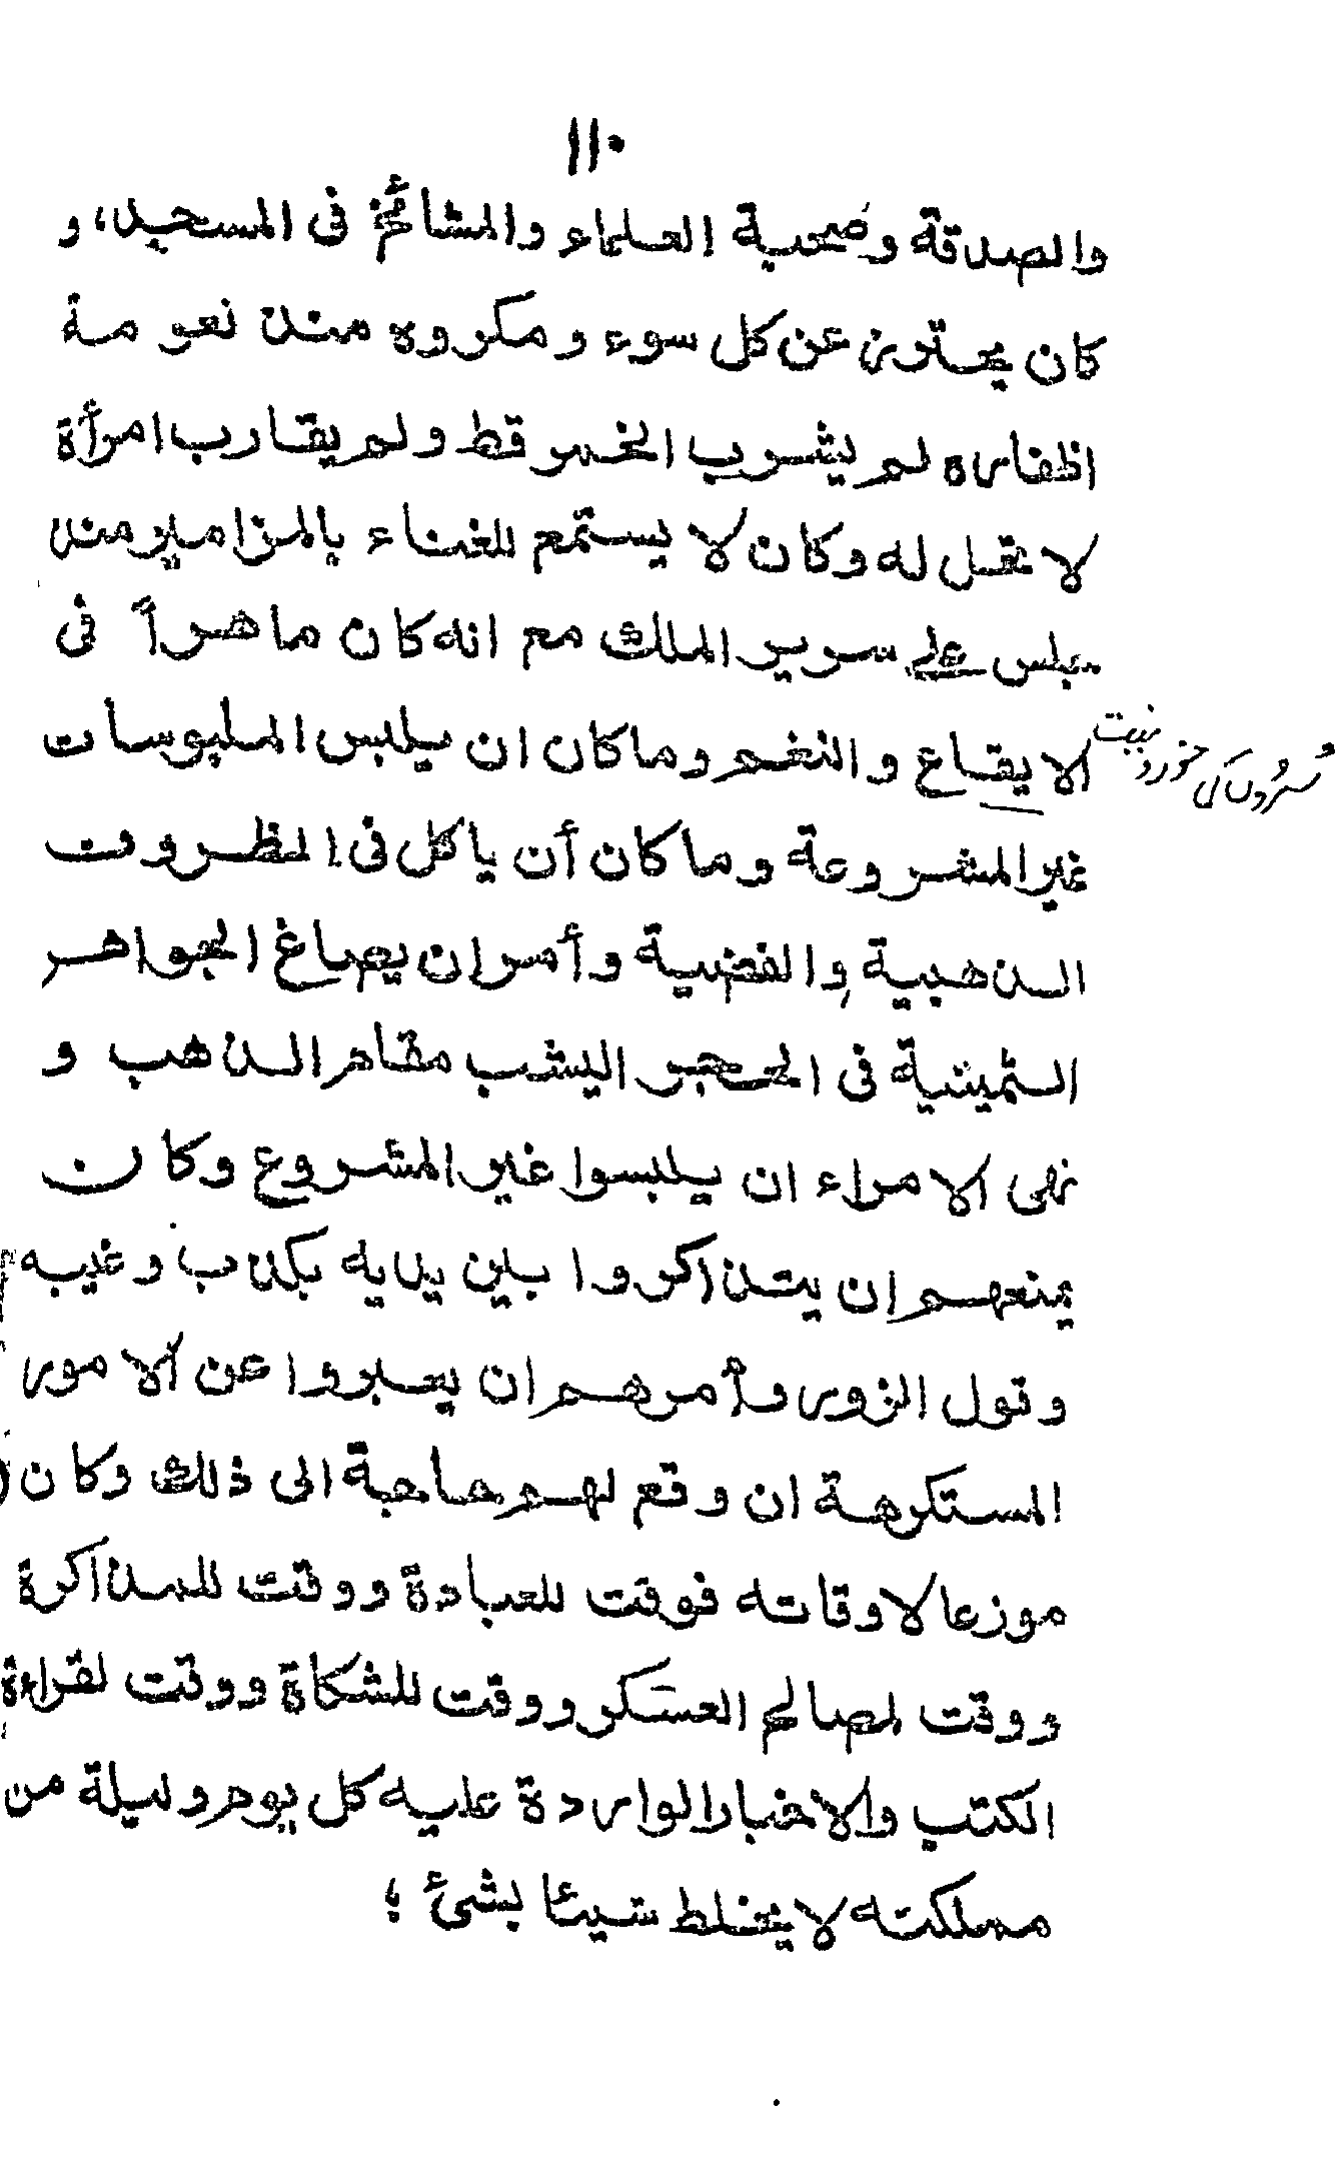 ١١٠
والصدقة وصحبة العلماء والمشائخ فى المسجد، و
كان يحترز عن كل سوء ومكروه منذ نعومة
اظفاره لم يشرب الخمر قط ولم يقارب امرأة
لا تحل له وكان لا يستمع للغناء بالمزامير منذ
جلس على سرير الملك مع انه كان ماهراً فى
الايقاع والنغم وما كان ان يلبس الملبوسات
سُروں کی
غير المشروعة وما كان أن ياكل فى الظروف
الذهبية والفضية وأمر ان يصاغ الجواهر
الثمينية فى الحجر اليشب مقام الذهب و
نهى الامراء ان يلبسوا غير المشروع وكان
يمنعهم ان يتذاكروا بين يديه بكذب وغيبه
وقول الزور وأمرهم ان يعبروا عن الامور
المستكرهة ان وقع لهم حاجة الى ذلك وكان
موزعا لاوقاته فوقت للعبادة ووقت للمذاكرة
ووقت لمصالح العسكر ووقت للشكاة ووقت لقراءة
الكتب والاخبار الواردة عليه كل يوم وليلة من
مملكته لا يخلط شيئا بشئ ؛